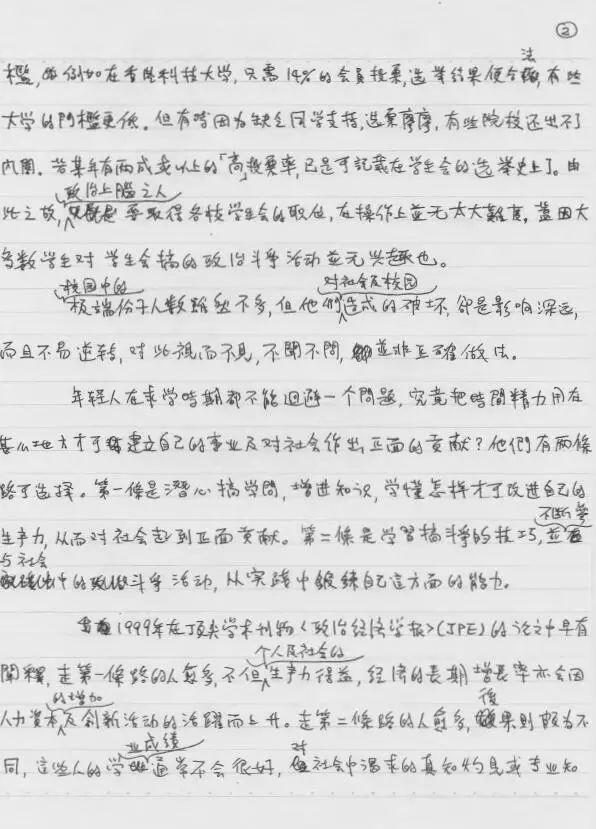 ②
檻,例如在香港科技大学,只需14%的会員投票,选举结果便合法,有些
大学的門檻更低。但有時因为缺乏同学支持,选票寥寥,有些院校还出不了
內閣。若某年有兩成或以上的「高」投票率,已是可記載在学生会的选举史上了。由
此之故,政治上腦之人要取得各校学生会的职位,在操作上並无太大難度,蓋因大
多數学生对学生会搞的政治斗爭活动並无兴趣也。
校园中的极端份子人數雖然不多,但他們对社会及校园造成的破坏,卻是影响深远,
而且不易逆转,对此視而不見,不聞不問,並非正確做法。
年轻人在求学時期都不能迴避一个問題,究竟把時間精力用在
甚么地方才可建立自己的事业及对社会作出正面的貢献?他們有两條
路可选择。第一條是潛心搞学問,增进知识,学懂怎样才可改进自己的
生产力,从而对社会起到正面貢献。第二條是学習搞斗爭的技巧,並不断參
与社会中的政治斗爭活动,从实践中鍛鍊自己這方面的能力。
1999年在頂尖学术刊物《政治经济学报》(JPE)的论文中早有
闡釋,走第一條路的人愈多,不但个人及社会的生产力得益,经济的長期增長率亦会因
人力资本的增加及創新活动的活躍而上升。走第二條路的人愈多,後果則頗为不
同,這些人的学业成績通常不会很好,对社会中渴求的真知灼見或专业知